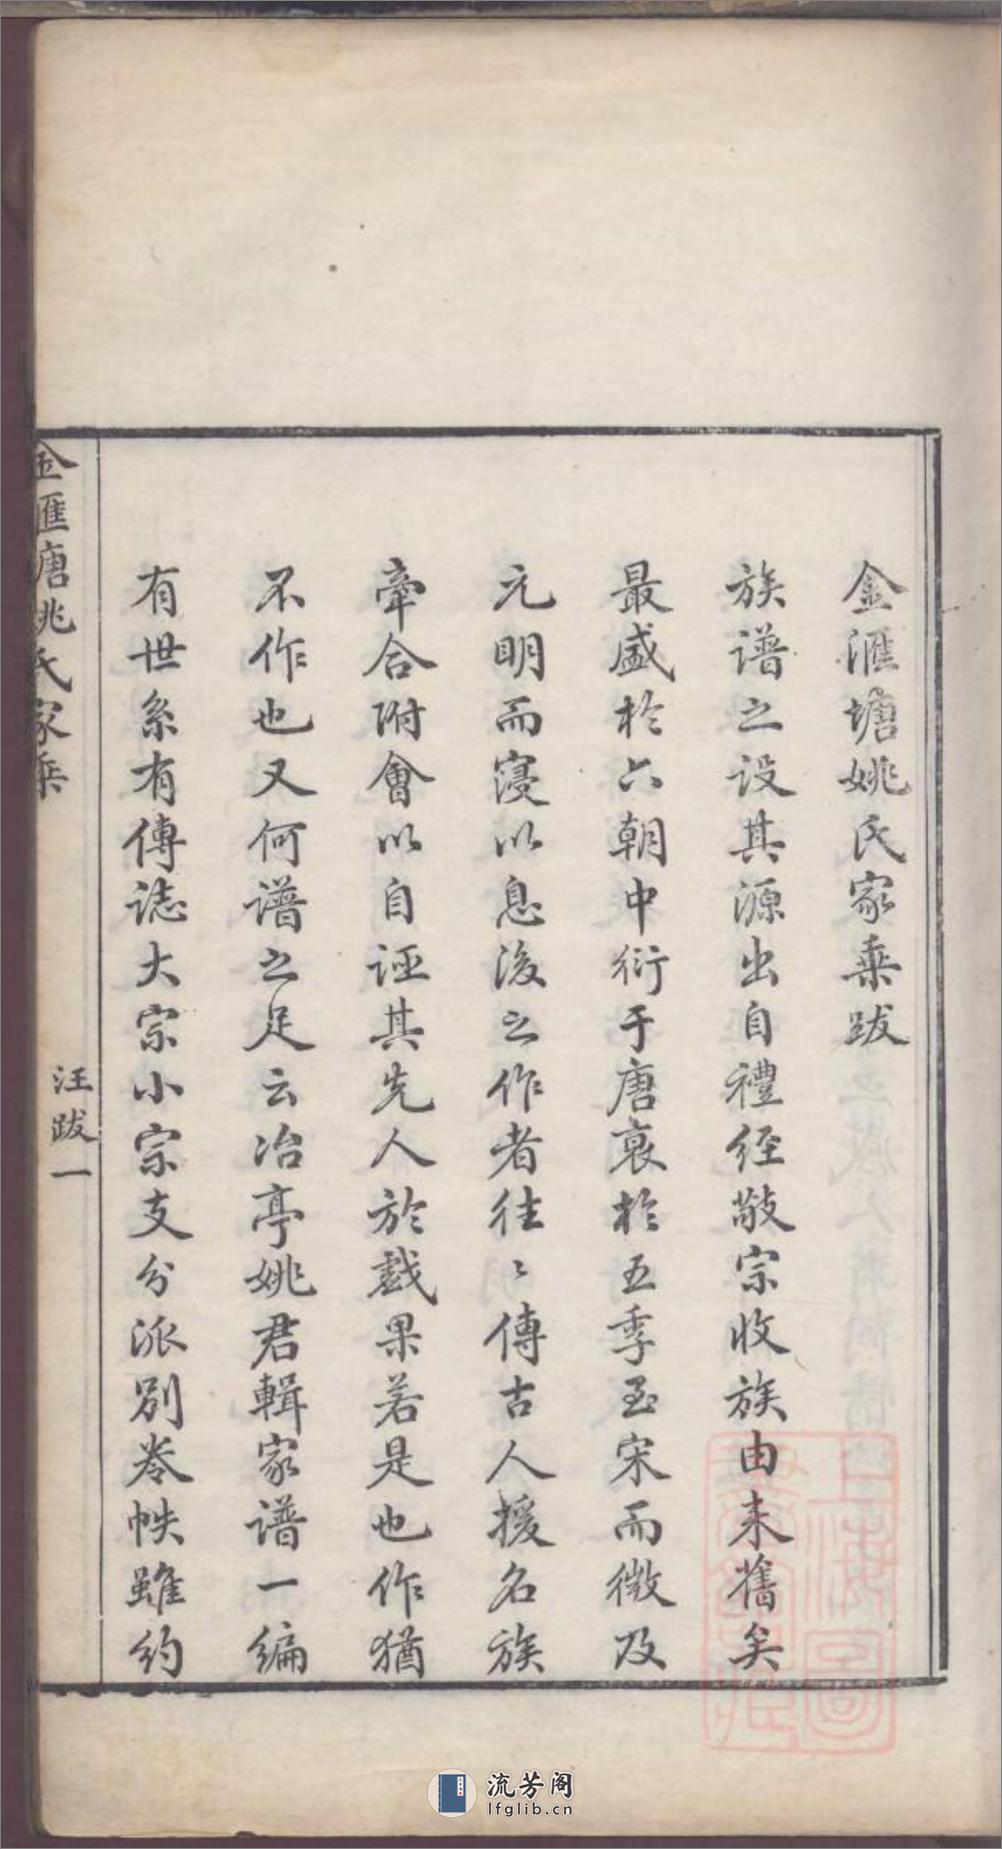 金滙塘姚氏家乘跋
族譜之设其源出自禮经敬宗收族由来舊矣
最盛於六朝中衍于唐衰於五季至宋而微及
元明而寖以息後之作者往〻傳古人援名族
牽合附會以自诬其先人於戲果若是也作猶
不作也又何谱之足云冶亭姚君輯家谱一编
有世系有傳誌大宗小宗支分派别卷帙雖约
金匯唐姚氏家乘
汪跋一
流芳阁
lfglib.cn